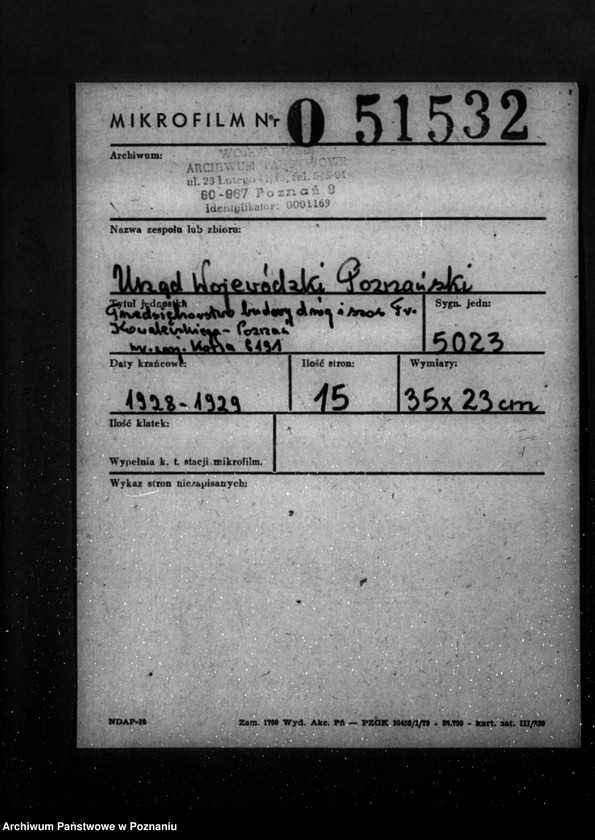 MIKROFILM Nr O 51532
Archiwum:
WOJEWÓDZKIE
ARCHIWUM PAŃSTWOWE
ul. 23 Lutego
60-967 Poznań 9
Identyfikator: 0001169
Nazwa zespołu lub zbioru:
Urząd Wojewódzki Poznański
Tytuł jednostki
Przedsiębiorstwo budowy dróg i szos Fr.
Sygn. jedn:
Kowalińskiego - Poznań
nr. ewj. Kotła 6191
5023
Daty krańcowe:
Ilość stron:
Wymiary:
1928-1929
15
35x23cm
Ilość klatek:
Wypełnia k. t. stacji mikrofilm.
Wykaz stron niezapisanych:
NDAP-20
Zam. 1760 Wyd. Akc. Pń — PZGK
Archiwum Państwowe w Poznaniu